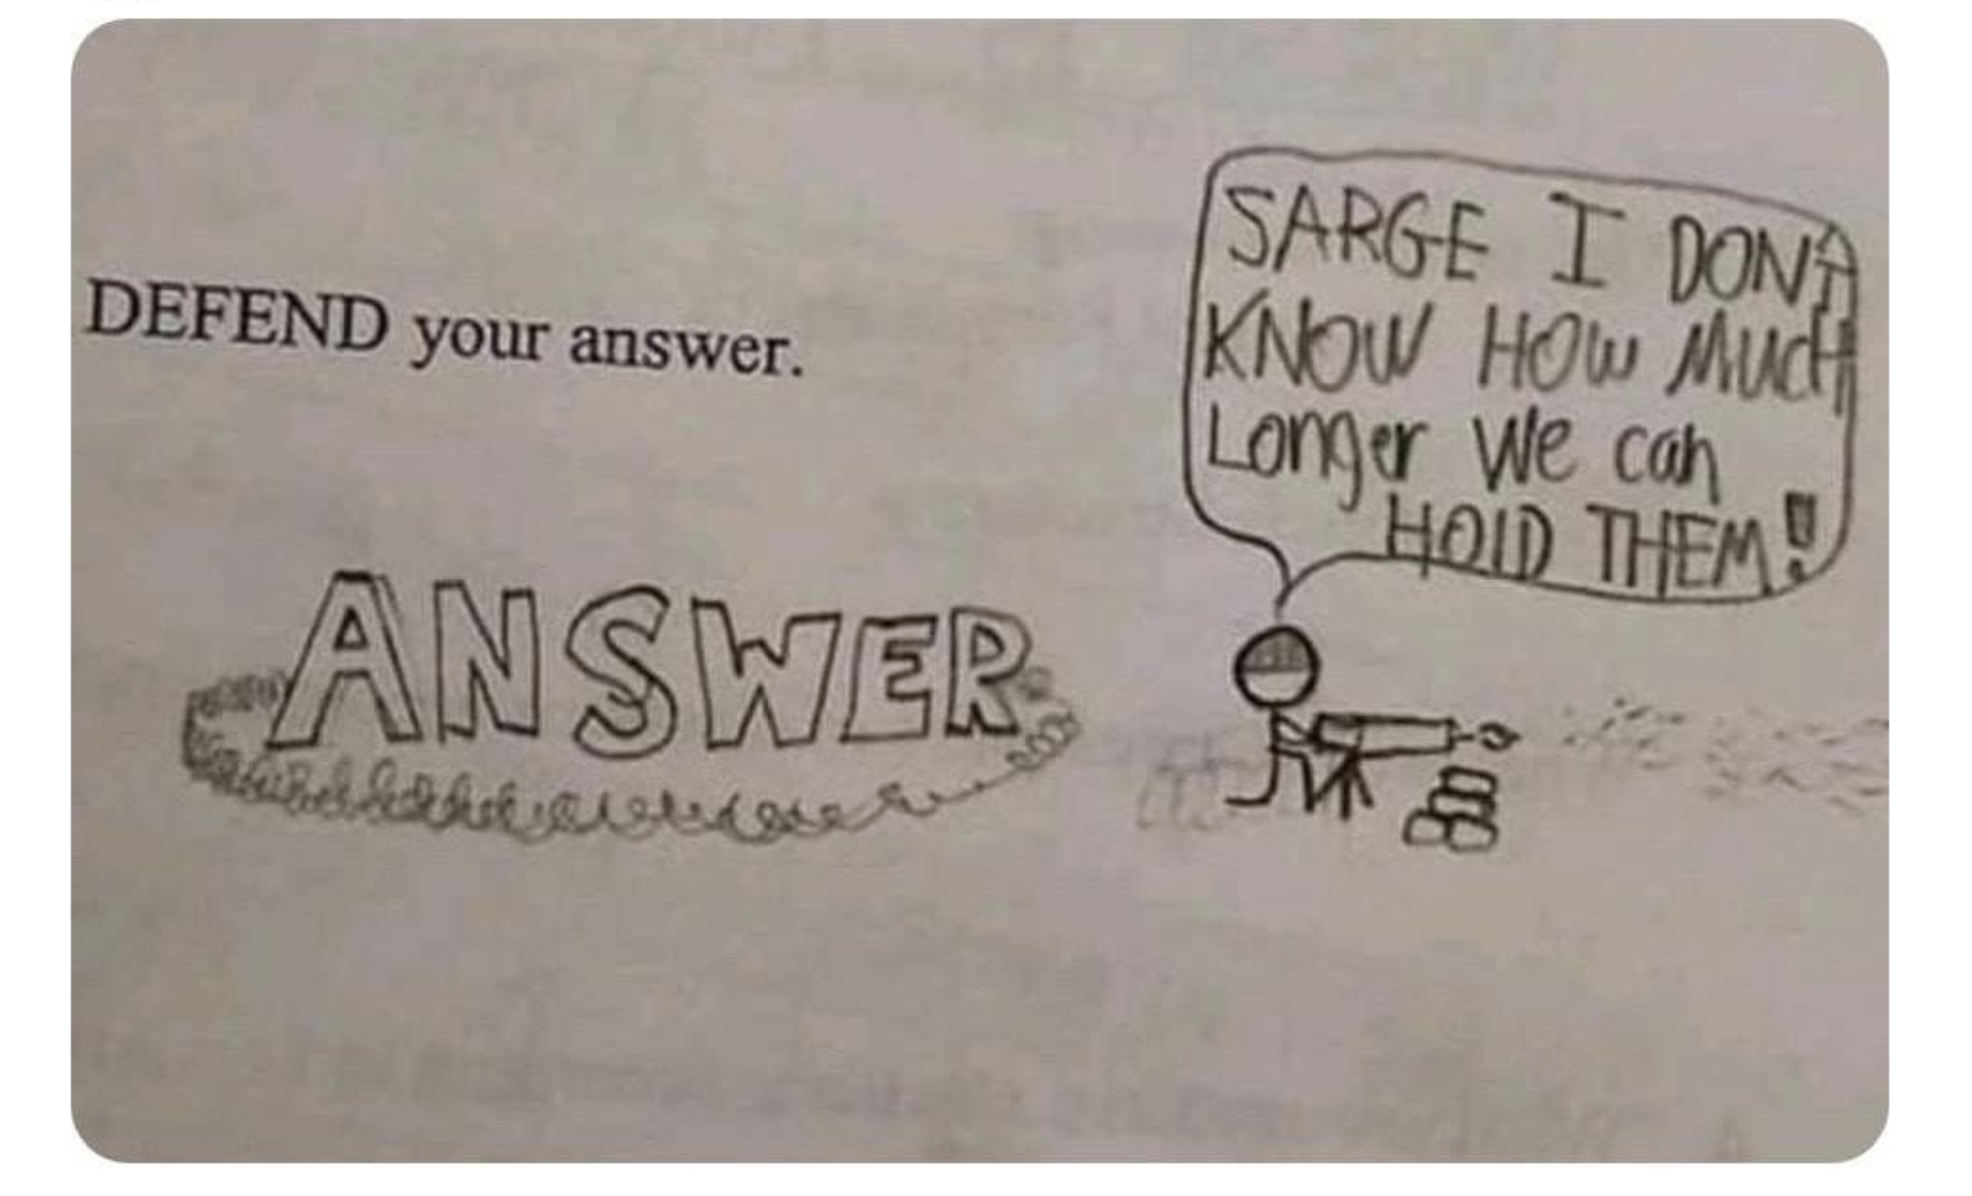 DEFEND your answer.
SARGE I DON'T
KNOW HOW MUCH
Longer We can
HOLD THEM!!
ANSWER